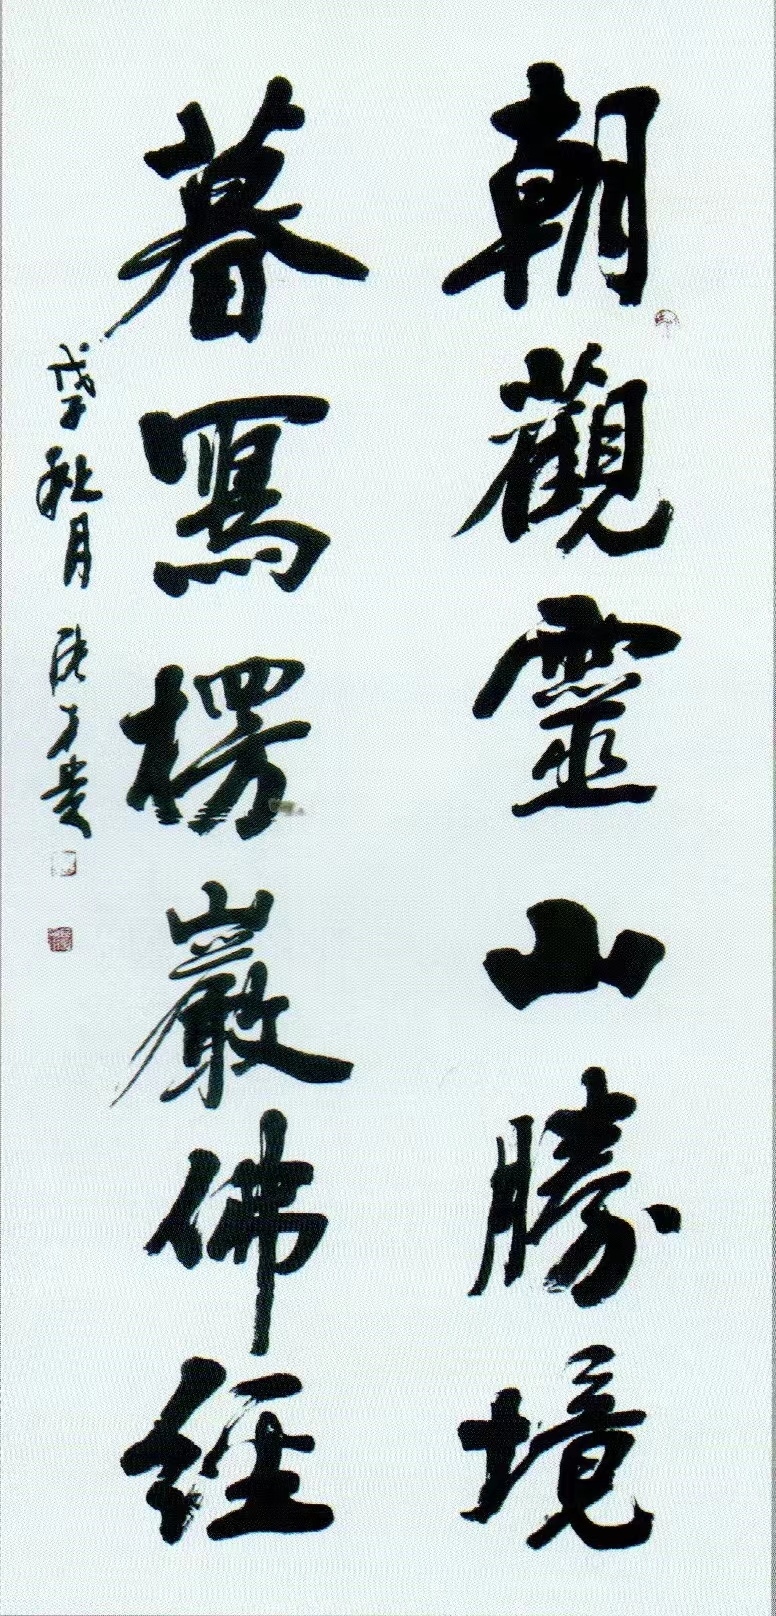 朝觀靈山勝境
暮寫楞嚴佛經
戊子秋月